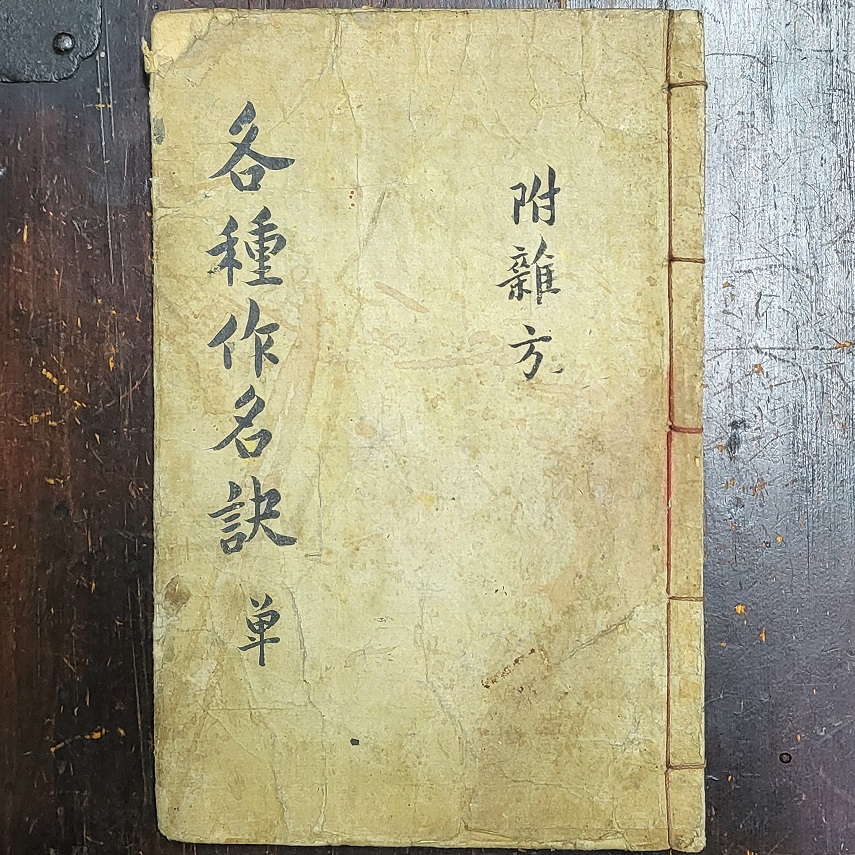 附雜方
各種作名訣单